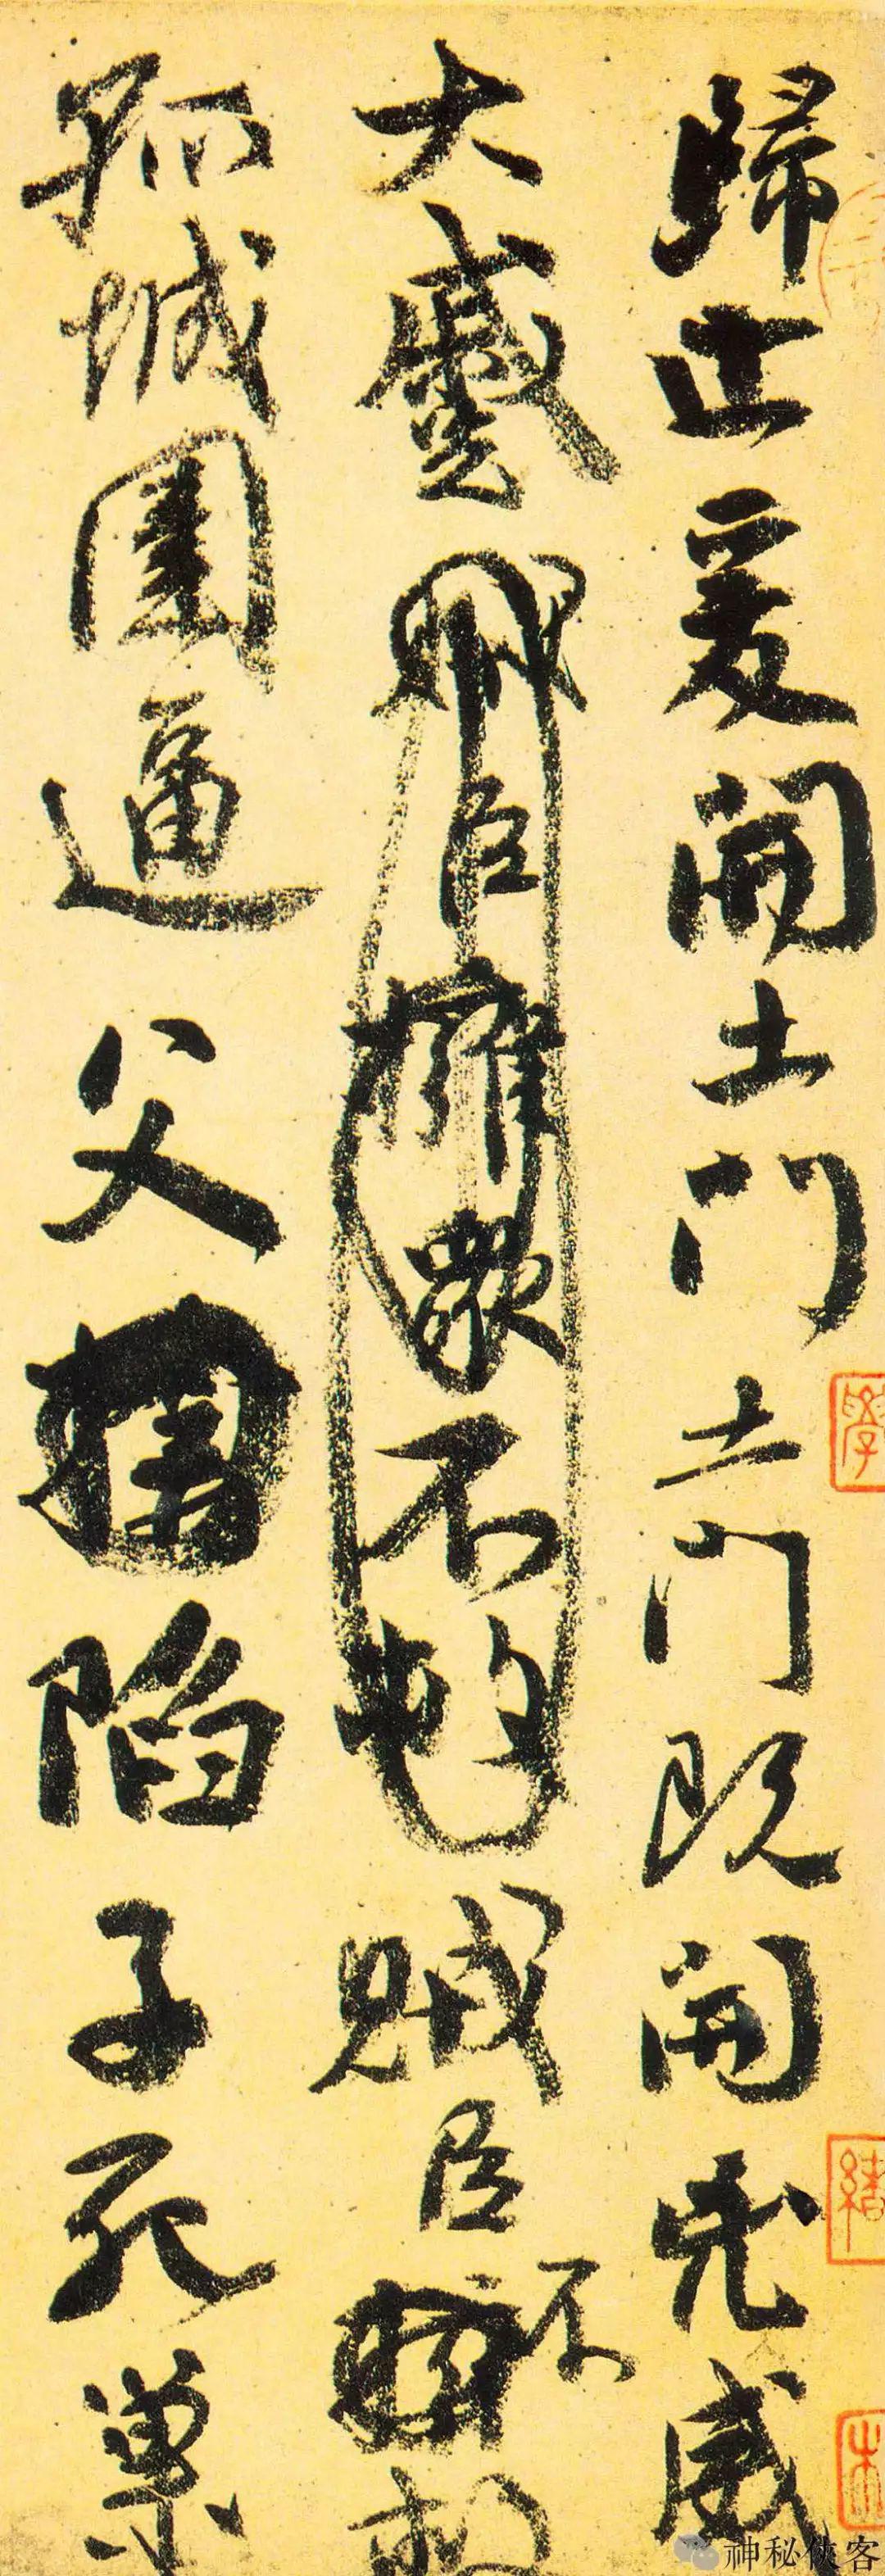 歸止爰開土門土門既開凶威
大蹙賊臣擁眾不救賊臣不救
孤城圍逼父陷子死巢
神秘俠客